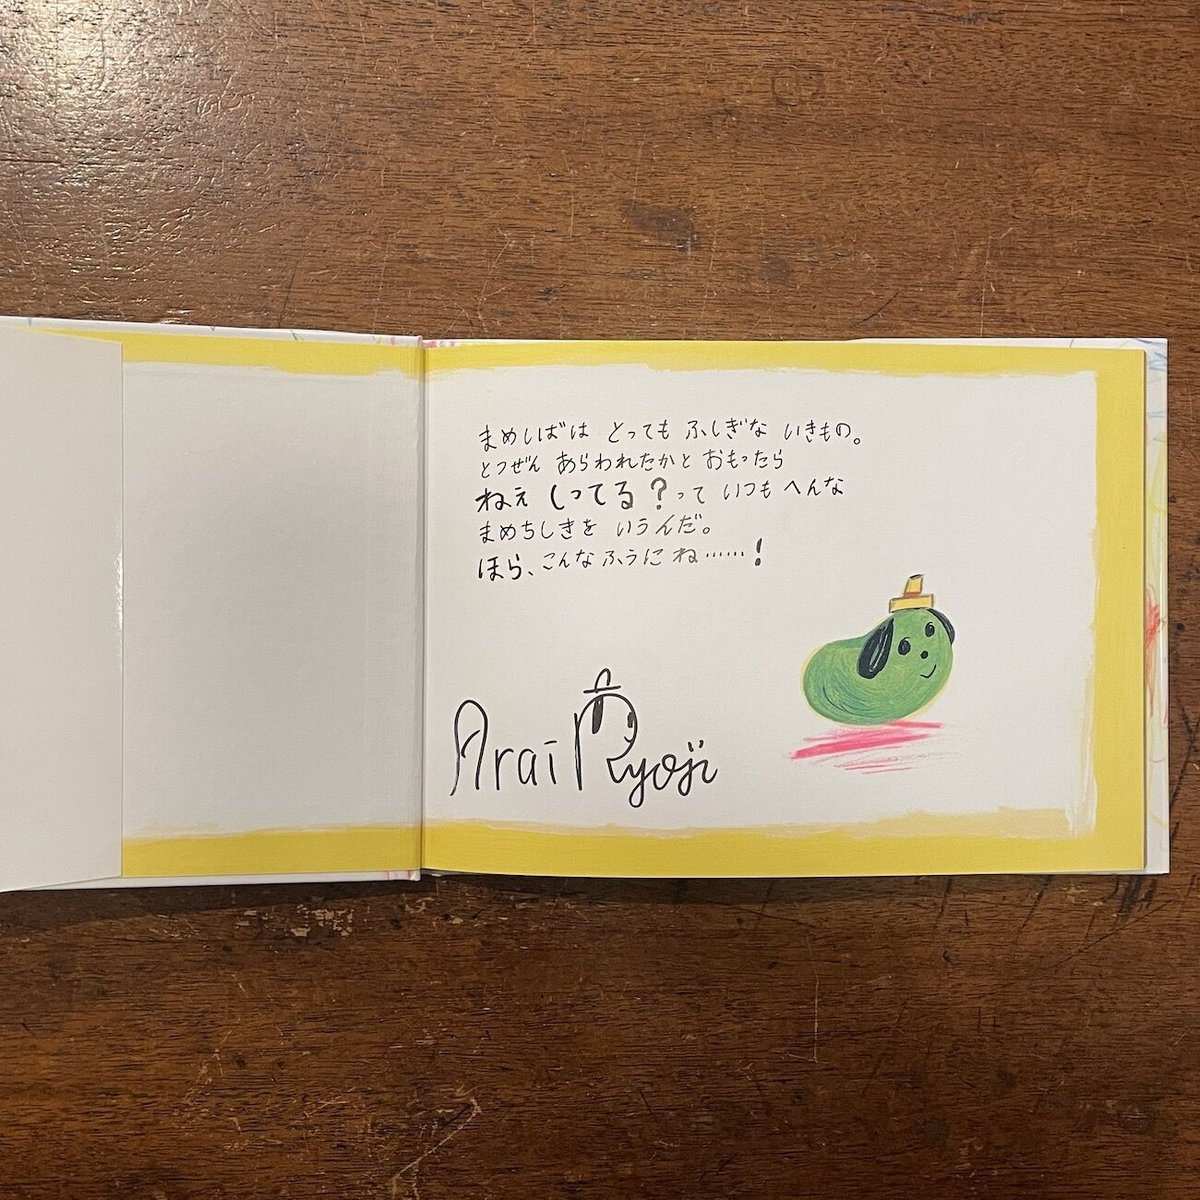 まめしばは とっても ふしぎな いきもの。
とつぜん あらわれたかと おもったら
ねぇ しってる？って いつも へんな
まめちしきを いうんだ。
ほら、こんなふうに ね……！
Arai Ryoji